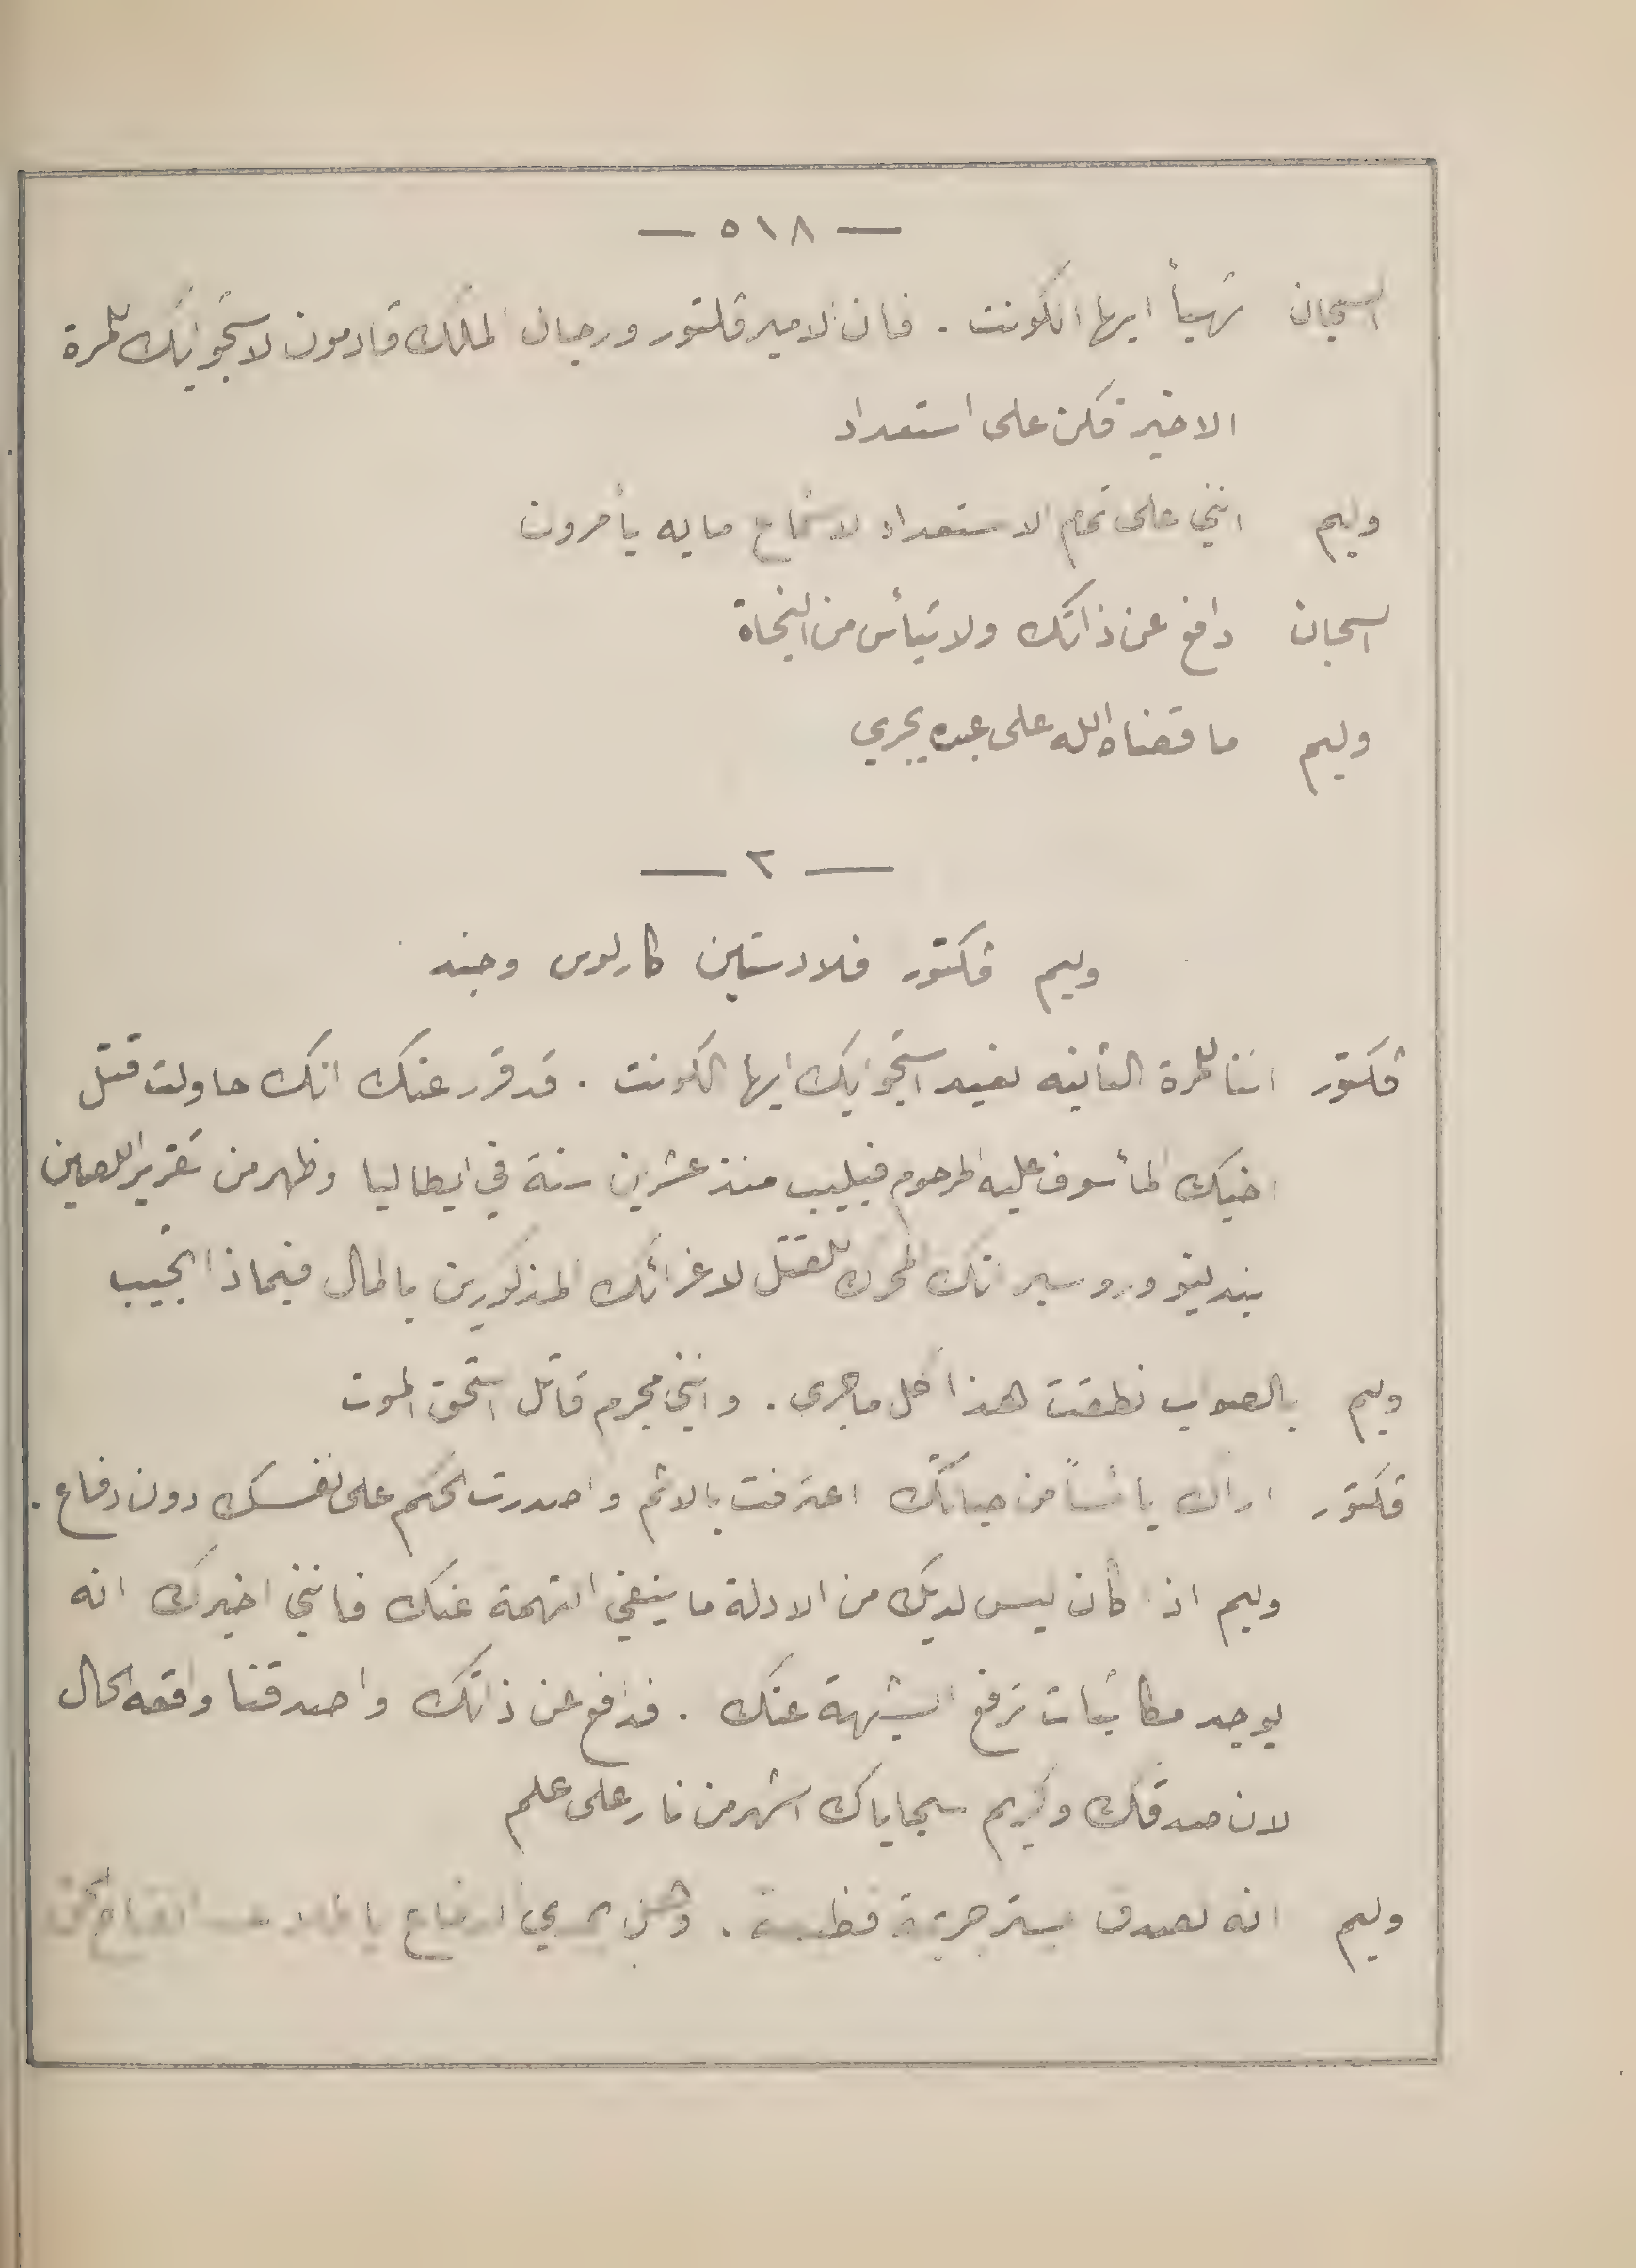 — ٥١٨ —
السجان تهيأ ايها الكونت . فان الامير ڤكتور ورجال الملك قادمون لاستجوابك للمرة
الاخيرة فكن على استعداد
وليم انني على تمام الاستعداد لاستماع ما به يأمرون
السجان دافع عن ذاتك ولا تيأس من النجاة
وليم ما قضاه الله على عبده يجري
— ٢ —
وليم ڤكتور فلادستين كارلوس وجند
ڤكتور اننا للمرة الثانيه نعيد استجوابك ايها الكونت . قد قرر عنك انك حاولت قتل
اخيك المأسوف عليه المرحوم فيليب منذ عشرين سنة في ايطاليا وظهر من تقرير اللعين
بندليو وروسير انك المحرك للقتل لاغرائك المذكورين بالمال فبماذا تجيب
وليم بالصواب نطقت هذا كل ما جرى . وانني مجرم قاتل استحق الموت
ڤكتور اراك يائساً من حياتك اعترفت بالاثم واصدرت الحكم على نفسك دون دفاع .
وليم اذا كان ليس لديك من الادلة ما ينفي التهمة عنك فانني اخبرك انه
يوجد مكاتبات ترفع الشبهة عنك . فدافع عن ذاتك واصدقنا واقعه الحال
لان صدقك وكريم سجاياك اشهر من نار على علم
وليم انه لصدق يستر جريمة فظيعة .